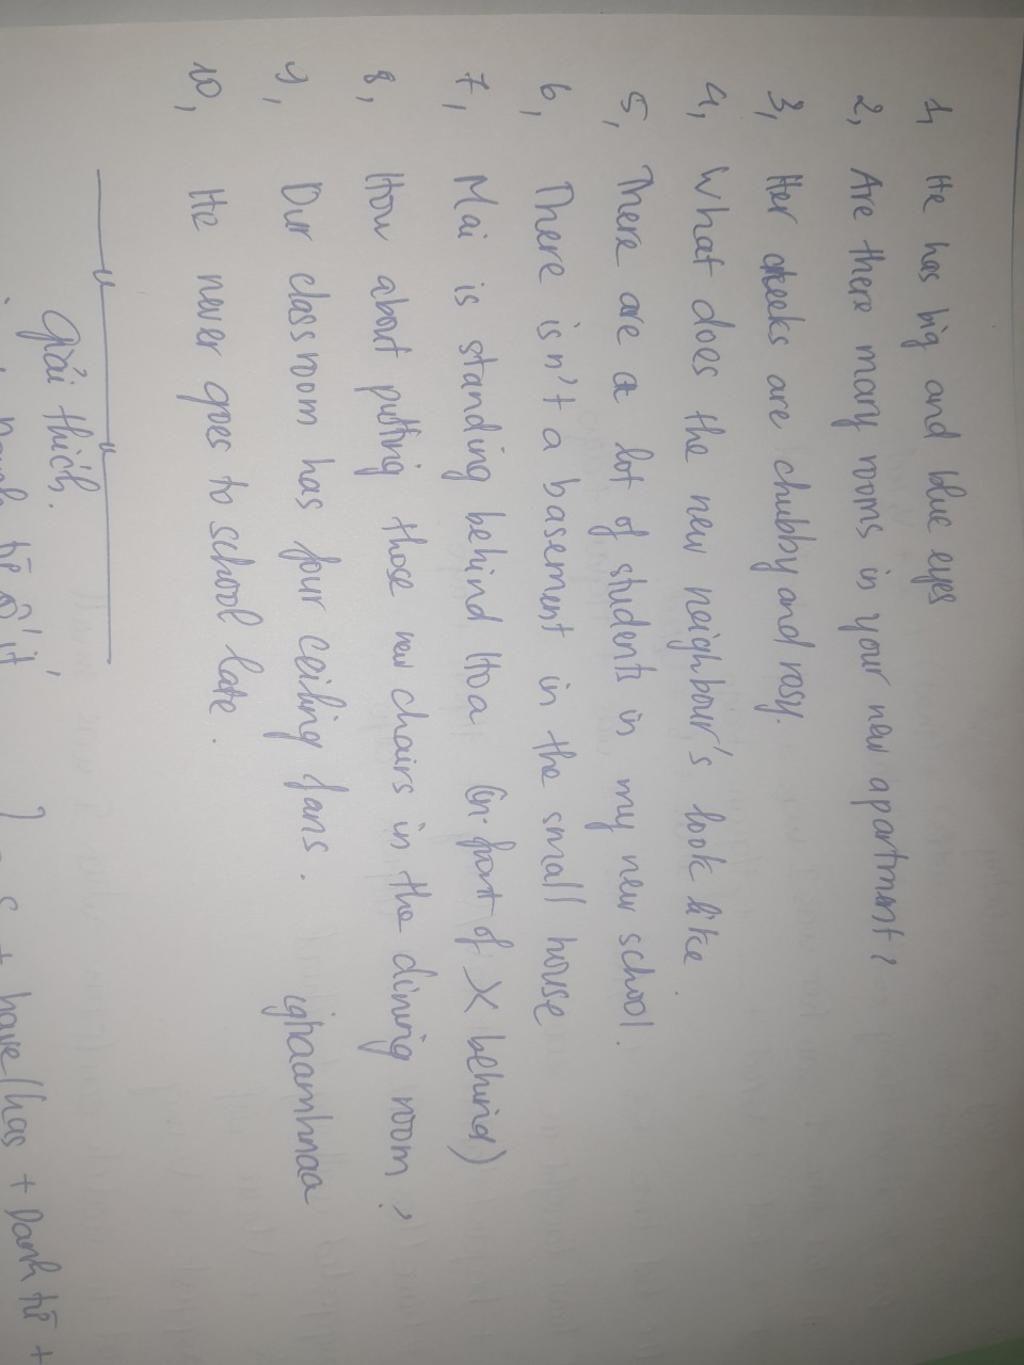 1, He has big and blue eyes
2, Are there many rooms in your new apartment?
3, Her cheeks are chubby and rosy.
4, What does the new neighbour's look like.
5, There are a lot of students in my new school.
6, There isn't a basement in the small house
7, Mai is standing behind Hoa (in front of X behind)
8, How about putting those new chairs in the dining room?
9, Our classroom has four ceiling fans. ighaamhnaa
10, He never goes to school late.
Giải thích.
S + have/has + Danh từ +